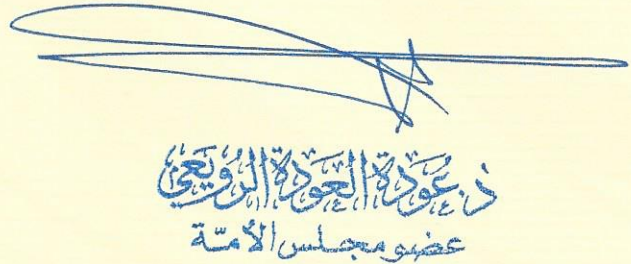 د. عُودَة العَودَة الرُّوَيعِي
عضو مجلس الأمّة